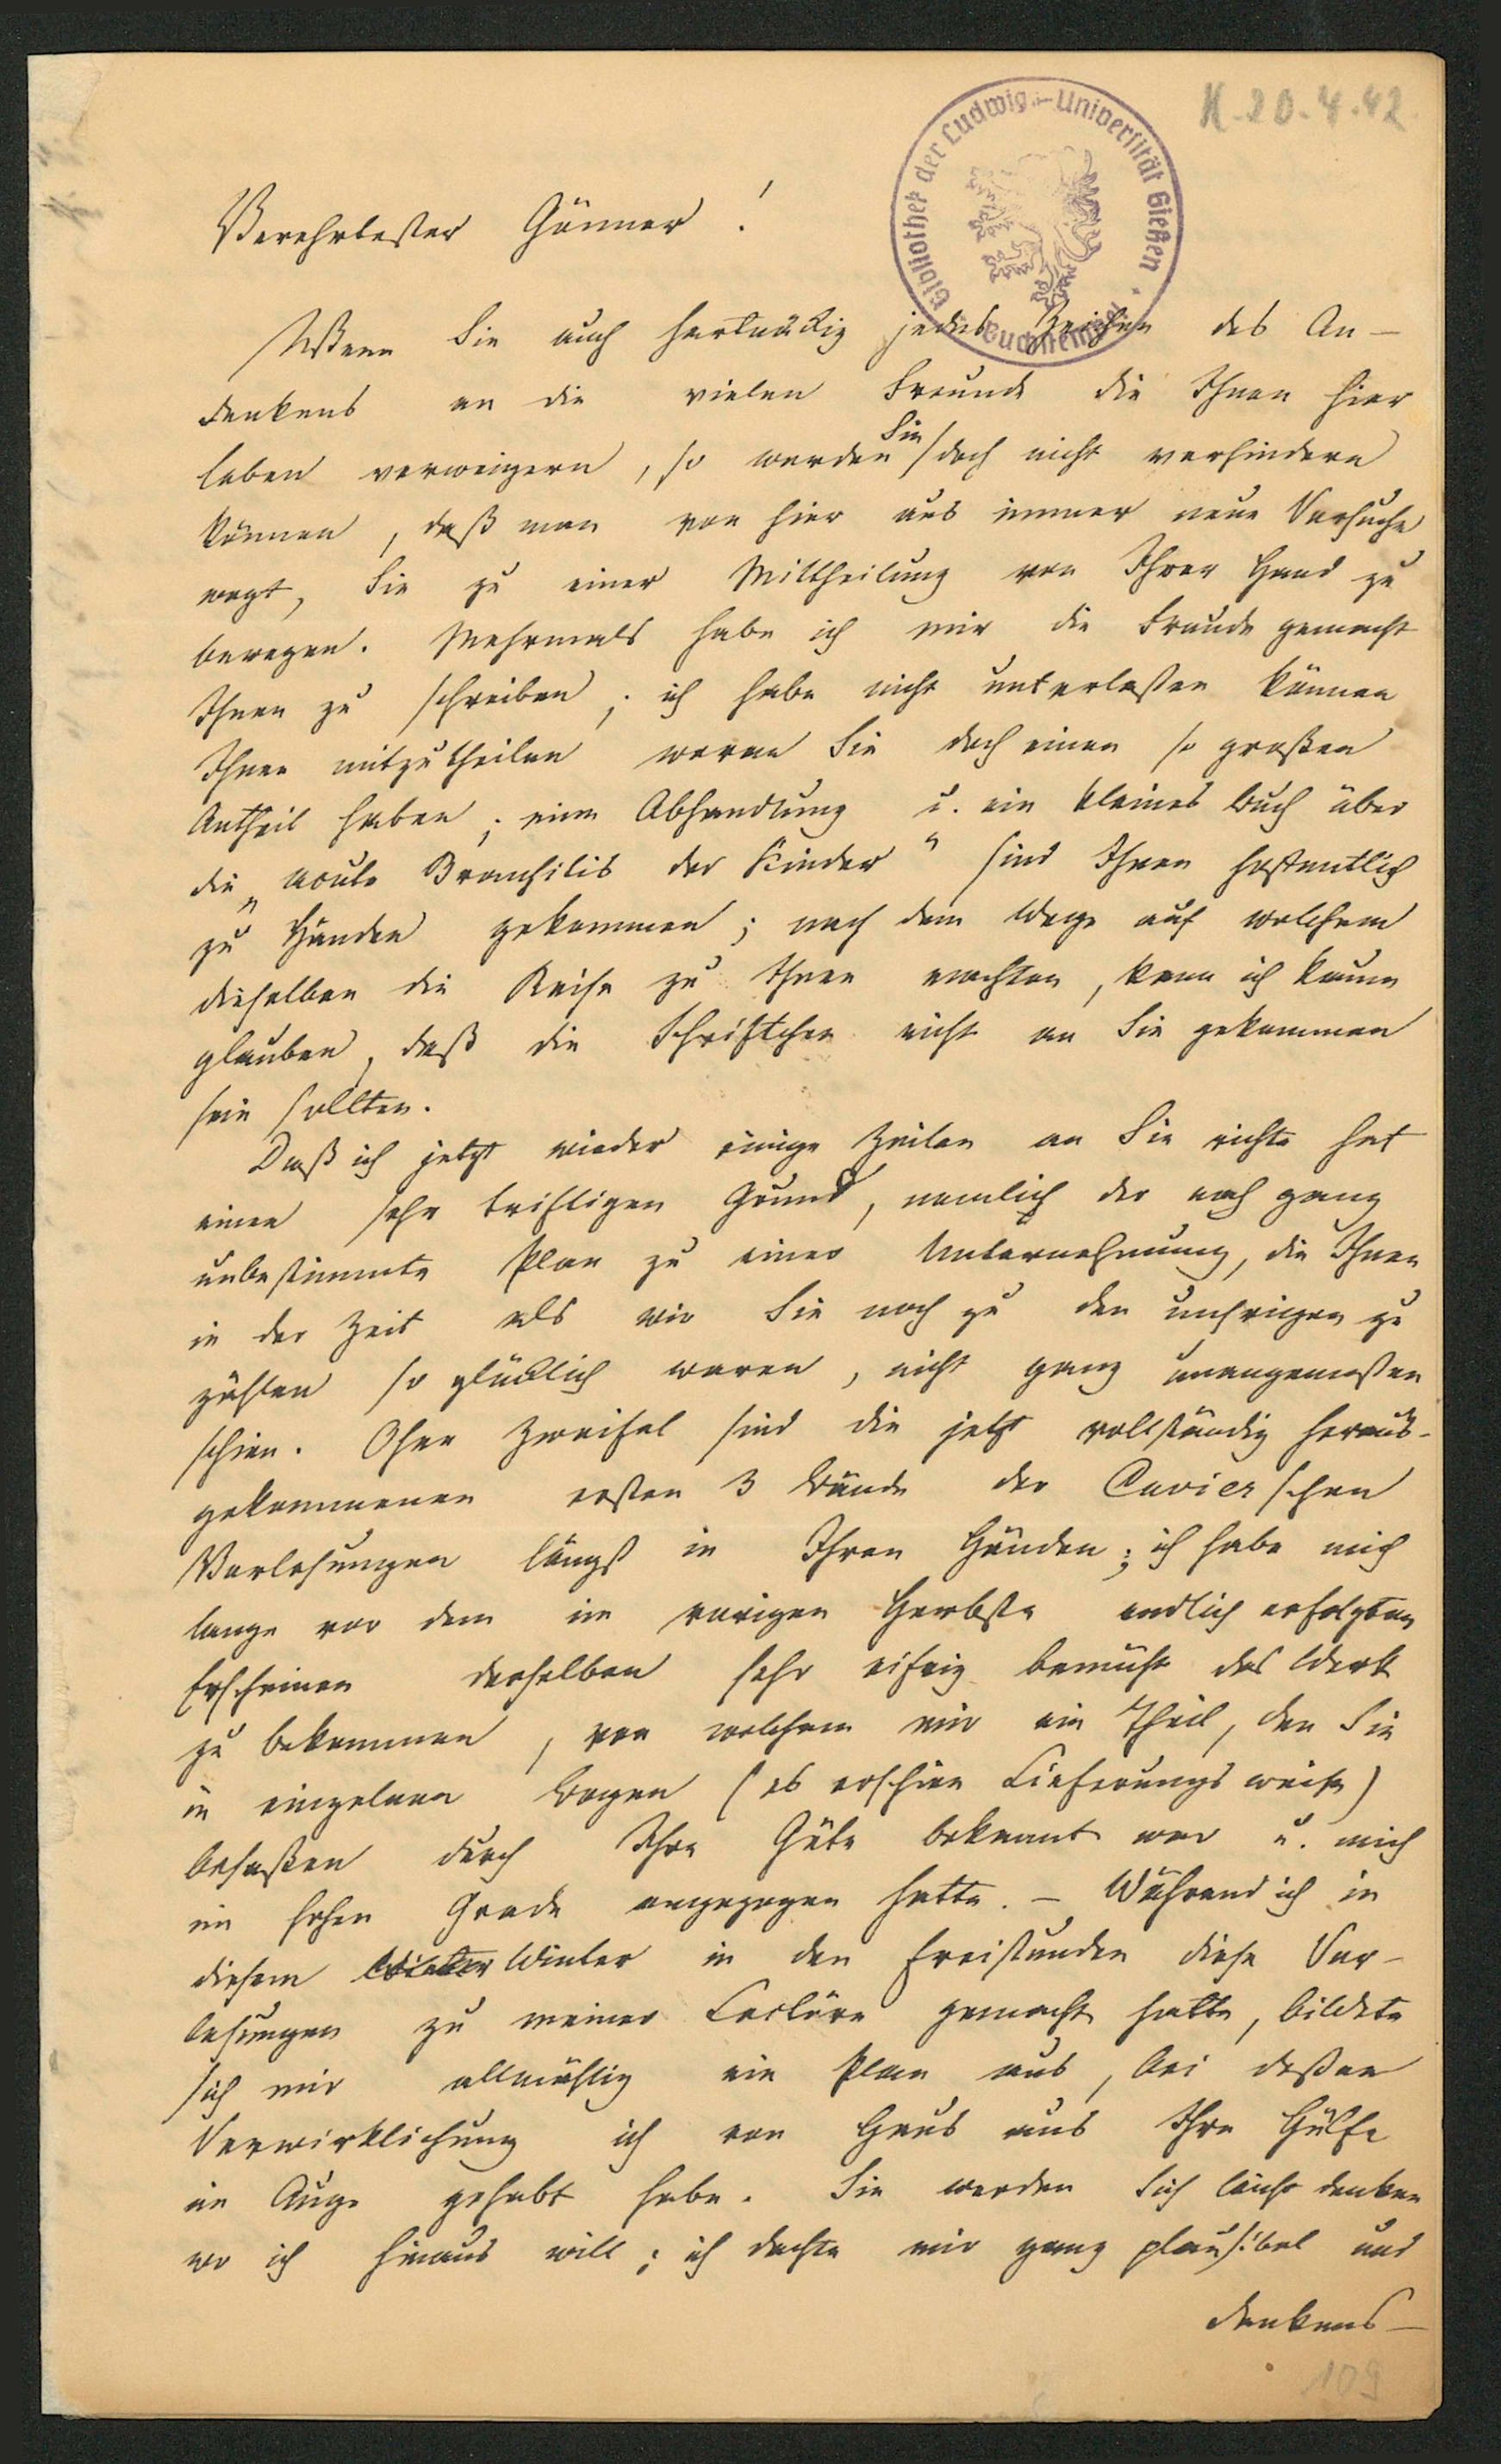 N. 20.4.42
Bibliothek der Ludwigs-Universität Gießen
Verehrtester Gönner!
Wenn Sie auch hartnäckig jedes Zeichen des An-
denkens an die vielen Freunde die Ihnen hier
leben verweigern, so werden Sie doch nicht verhindern
können, daß man von hier aus immer neue Versuche
wagt, Sie zu einer Mittheilung von Ihrer Hand zu
bewegen. Mehrmals habe ich mir die Freude gemacht
Ihnen zu schreiben; ich habe nicht unterlaßen können
Ihnen mitzutheilen woran Sie doch einen so großen
Antheil haben; eine Abhandlung u. ein kleines Buch über
die „acute Bronchitis der Kinder“ sind Ihnen hoffentlich
zu Händen gekommen; nach dem Wege auf welchem
dieselben die Reise zu Ihnen machten, kann ich kaum
glauben, daß die Schriftchen nicht an Sie gekommen
sein sollten.
Daß ich jetzt wieder einige Zeilen an Sie richte hat
einen sehr triftigen Grund, nemlich der noch ganz
unbestimmte Plan zu einer Unternehmung, die Ihnen
in der Zeit als wir Sie noch zu den unsrigen zu
zählen so glücklich waren, nicht ganz unangemeßen
schien. Ohne Zweifel sind die jetzt vollständig heraus-
gekommenen ersten 3 Bände der Cuvierschen
Vorlesungen längst in Ihren Händen; ich habe mich
lange vor dem im vorigen Herbste endlich erfolgten
Erscheinen derselben sehr eifrig bemüht das Werk
zu bekommen, von welchem mir ein Theil, den Sie
in einzelnen Bogen (es erschien Lieferungsweise)
besaßen durch Ihre Güte bekannt war u. mich
im hohen Grade angezogen hatte. – Während ich in
diesem Winter Winter in den Freistunden diese Vor-
lesungen zu meiner Lectüre gemacht hatte, bildete
sich mir allmählig ein Plan aus, bei deßen
Verwirklichung ich von Haus aus Ihre Hülfe
im Auge gehabt habe. Sie werden Sich leicht denken
wo ich hinaus will; ich dachte mir ganz plausibel und
denkens-
109